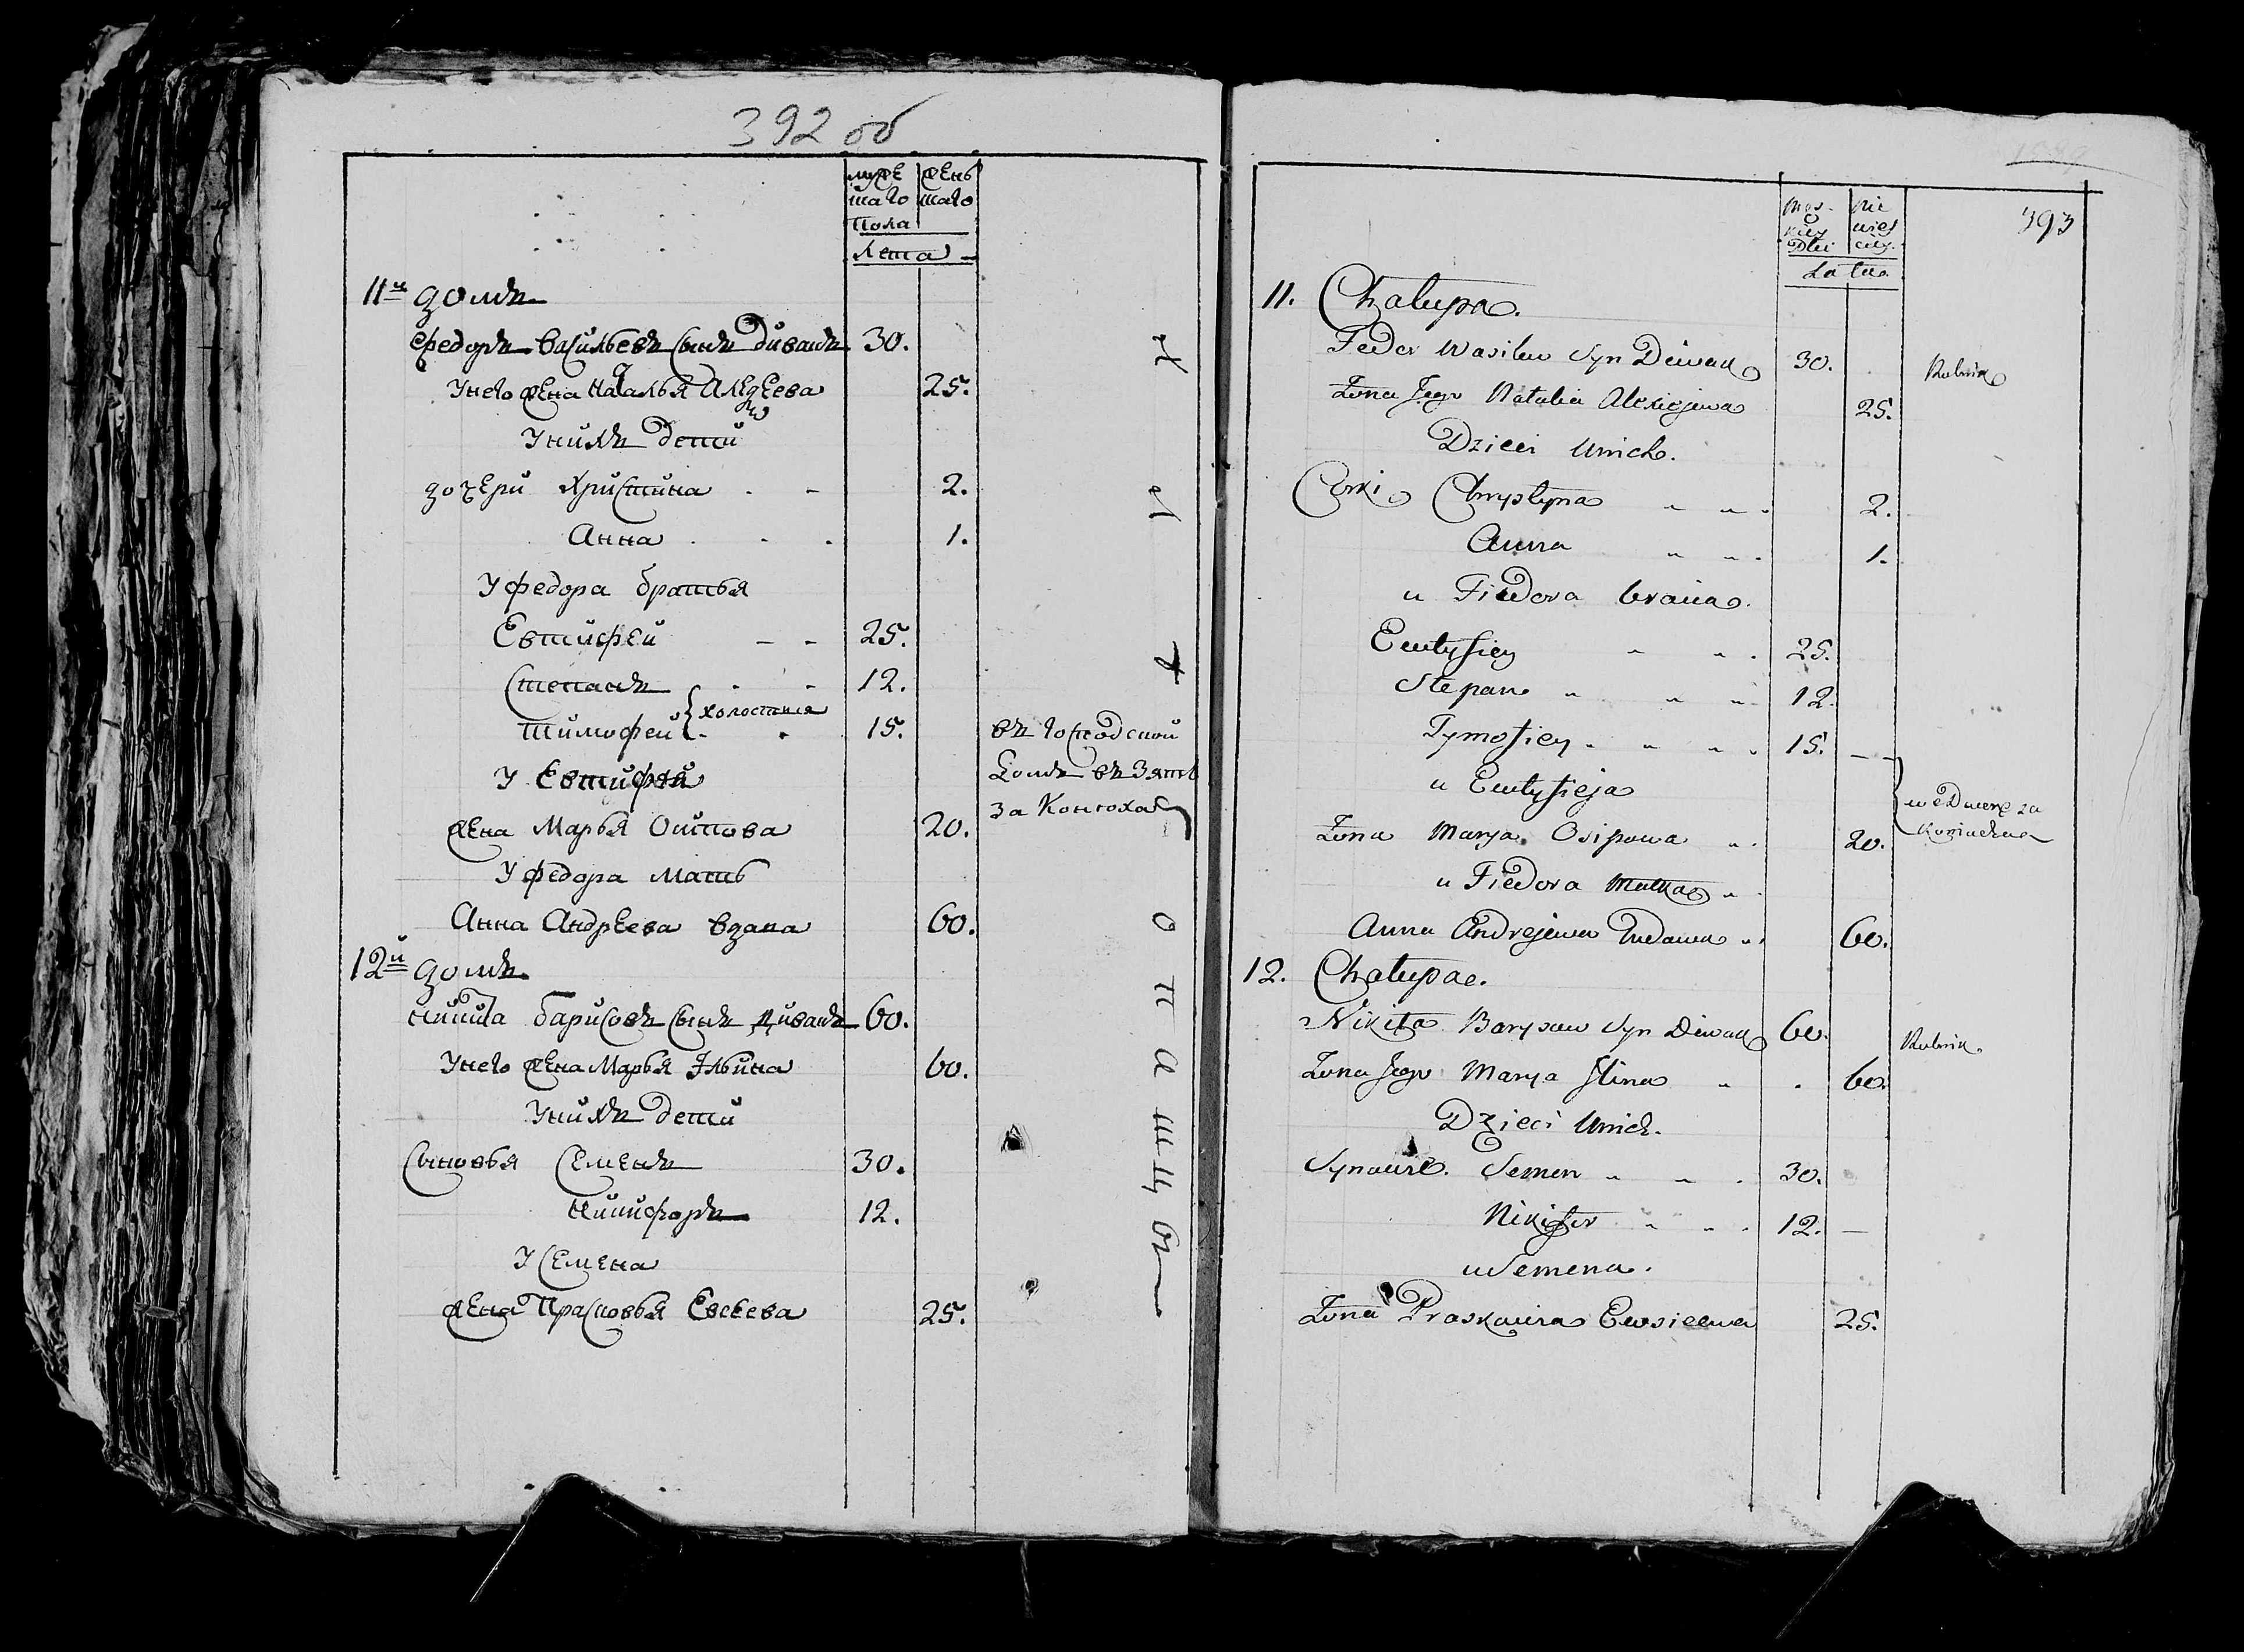 392 об
муже женс
скаго скаго
пола
лета
11й домъ
Федоръ Васильевъ сынъ Диванъ 30.
У него жена Наталья Алексеева 25.
У нихъ дети
дочери Христина 2.
Анна 1.
У Федора братья
Евтифей 25.
Степанъ 12.
холостыя
Тимофей 15.
въ господской
У Евтифея
за Конюха
жена Марья Осипова 20.
У Федора мать
Анна Андреева вдава 60.
12й домъ
Никита Барисовъ сынъ Диванъ 60.
У него жена Марья Ильина 60.
У нихъ дети
Сыновья Семенъ 30.
Никифоръ 12.
У Семена
жена Прасковья Евсеева 25.
393
Latta
11. Chałupa.
Fedor Wasilew Syn Diwan 30. Rolnik
Zona Jego Natalia Alexiejewa 25.
Dzieci U nich.
Corki Chrystyna 2.
Anna 1.
u Fiedora bracia.
Ewtyfiey 25.
Stepan 12.
Tymofiey 15.
u Ewtyfieja
we Dworze za
Zona Marya Osipowa 20.
u Fiedora Matka
Anna Andrejewa Wdawa 60.
12. Chałupa.
Nikita Barysaw Syn Diwan 60. Rolnik
Zona Jego Marya Ilina 60.
Dzieci U nich.
Synowie. Semen 30.
Nikifor 12.
u Semena.
Zona Praskowia Ewsieewa 25.